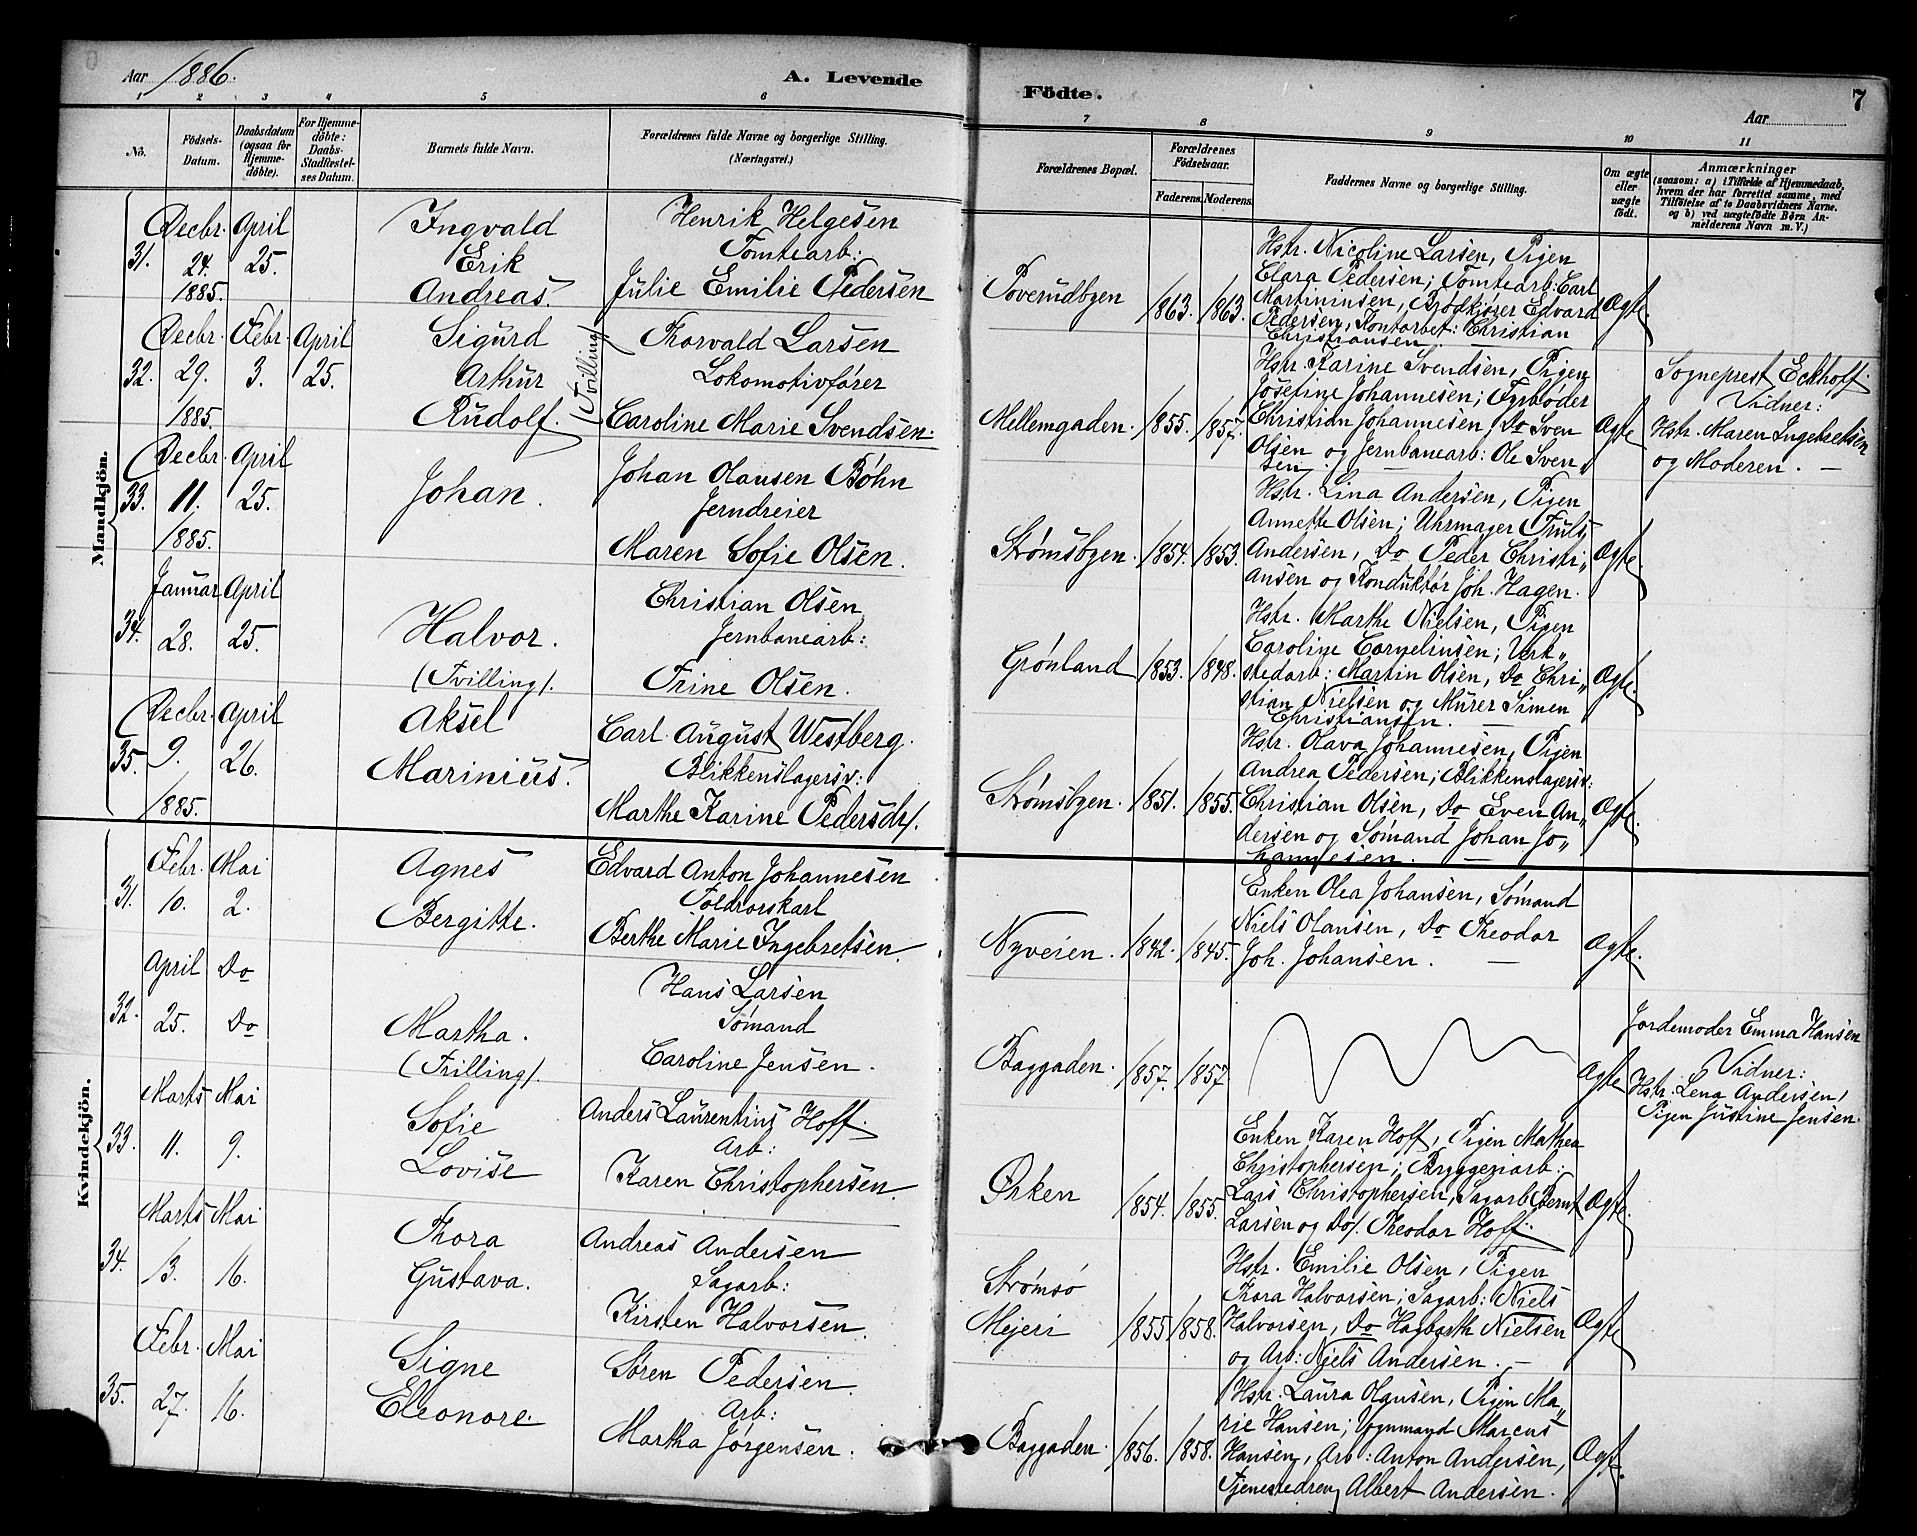 Aar 1886.
A. Levende
Födte.
Aar
7
1 2 3 4 5 6 7 8 9 10 11
No.
Födsels-Datum.
Daabsdatum (ogsaa for Hjemmedöbte).
For Hjemmedöbte: Daabs-Stadfæstelses Datum.
Barnets fulde Navn.
Forældrenes fulde Navne og borgerlige Stilling.
(Næringsvei.)
Forældrenes Bopæl.
Forældrenes Födselsaar.
Faderens. Moderens.
Faddernes Navne og borgerlige Stilling.
Om ægte eller uægte födt.
Anmærkninger
(saasom: a) i Tilfælde af Hjemmedaab, hvem der har forrettet samme, med Tilföielse af to Daabsvidners Navne. og b) ved uægtefödte Børn Anmelderens Navn m. V.)
Mandkjön.
31.
Decbr. 24. 1885.
April 25.
Ingvald
Erik
Andreas.
Henrik Helgesen
Tomtearb:
Julie Emilie Pedersen
Toverudbyen
1863. 1863.
Hstr. Nicoline Larsen, Pigen
Clara Pedersen; Tomtearb: Carl
Martininsen, Brødkjører Edvard
Pedersen, Kontorbet: Christian
Christiansen.
Ægte.
32.
Decbr. 29. 1885.
Febr. 3.
April 25.
Sigurd
Arthur
Rudolf.
(Tvilling)
Thorvald Larsen
Lokomotivfører
Caroline Marie Svendsen.
Mellemgaden.
1855. 1857.
Hstr. Karine Svendsen, Pigen
Josefine Johannesen; Fyrbøder
Christian Johannesen, Do Sven
Olsen og Jernbanearb: Ole Sven„
sen.
Ægte
Sogneprest Eckhoff.
Vidner:
Hstr. Maren Ingebretsen
og Moderen. —
33.
Decbr. 11. 1885.
April 25.
Johan.
Johan Olausen Bøhn
Jerndreier
Maren Sofie Olsen.
Strømsbyen.
1854. 1853.
Hstr. Lina Andersen, Pigen
Annette Olsen; Uhrmager Truls
Andersen, Do Peder Christi„
ansen og Konduktør Joh. Hagen.
Ægte.
34.
Januar 28.
April 25.
Halvor.
(Tvilling).
Christian Olsen
Jernbanearb:
Trine Olsen.
Grønland
1853. 1848.
Hstr. Marthe Nielsen, Pigen
Caroline Corneliusen; Verk„
stedarb: Martin Olsen, Do Chri„
stian Nielsen og Murer Simen
Christiansen. —
Ægte.
35.
Decbr. 9. 1885.
April 26.
Aksel
Marinius.
Carl August Westberg.
Blikkenslagersv:
Marthe Karine Pedersdr.
Strømsbyen.
1851. 1855.
Hstr. Olava Johannesen, Pigen
Andrea Pedersen; Blikkenslagersv:
Christian Olsen, Do Even An„
dersen og Sømand Johan Jo„
hannesen. —
Ægte.
Kvindekjön.
31.
Febr. 10.
Mai 2.
Agnes
Bergitte.
Edvard Anton Johannesen
Toldrorskarl
Berthe Marie Ingebretsen.
Nyveien.
1842. 1845.
Enken Olea Johansen, Sømand
Niels Olausen, Do Theodor
Joh. Johansen. —
Ægte.
32.
April 25.
Do
Do
Martha.
(Trilling).
Hans Larsen
Sømand
Caroline Jensen.
Baggaden.
1857. 1857
Ægte
Jordemoder Emma Hansen
Vidner:
Hstr. Lena Andersen,
Pigen Justine Jensen.
33.
Marts 11.
Mai 9.
Sofie
Lovise
Anders Laurentius Hoff.
Arb:
Karen Christophersen.
Ørken
1854. 1855.
Enken Karen Hoff, Pigen Mathea
Christophersen; Bryggeriarb:
Lars Christophersen, Sagarb. Bernt
Larsen og Do. Theodor Hoff.
Ægte.
34.
Marts 13.
Mai 16.
Thora
Gustava.
Andreas Andersen
Sagarb:
Kirsten Halvorsen.
Strømsø
Mejeri
1855 1858.
Hstr. Emilie Olsen, Pigen
Thora Halvorsen; Sagarb: Niels
Halvorsen, Do Hagbarth Nielsen
og Arb: Niels Andersen. —
Ægte
35.
Febr. 27.
Mai 16.
Signe
Eleonore.
Søren Pedersen.
Arb:
Martha Jørgensen.
Baggaden.
1856. 1858.
Hstr. Laura Olausen, Pigen Ma„
rie Hansen; Vognmand Marcus
Hansen, Arb: Anton Andersen,
Tjenestedreng Albert Andersen.
Ægt.